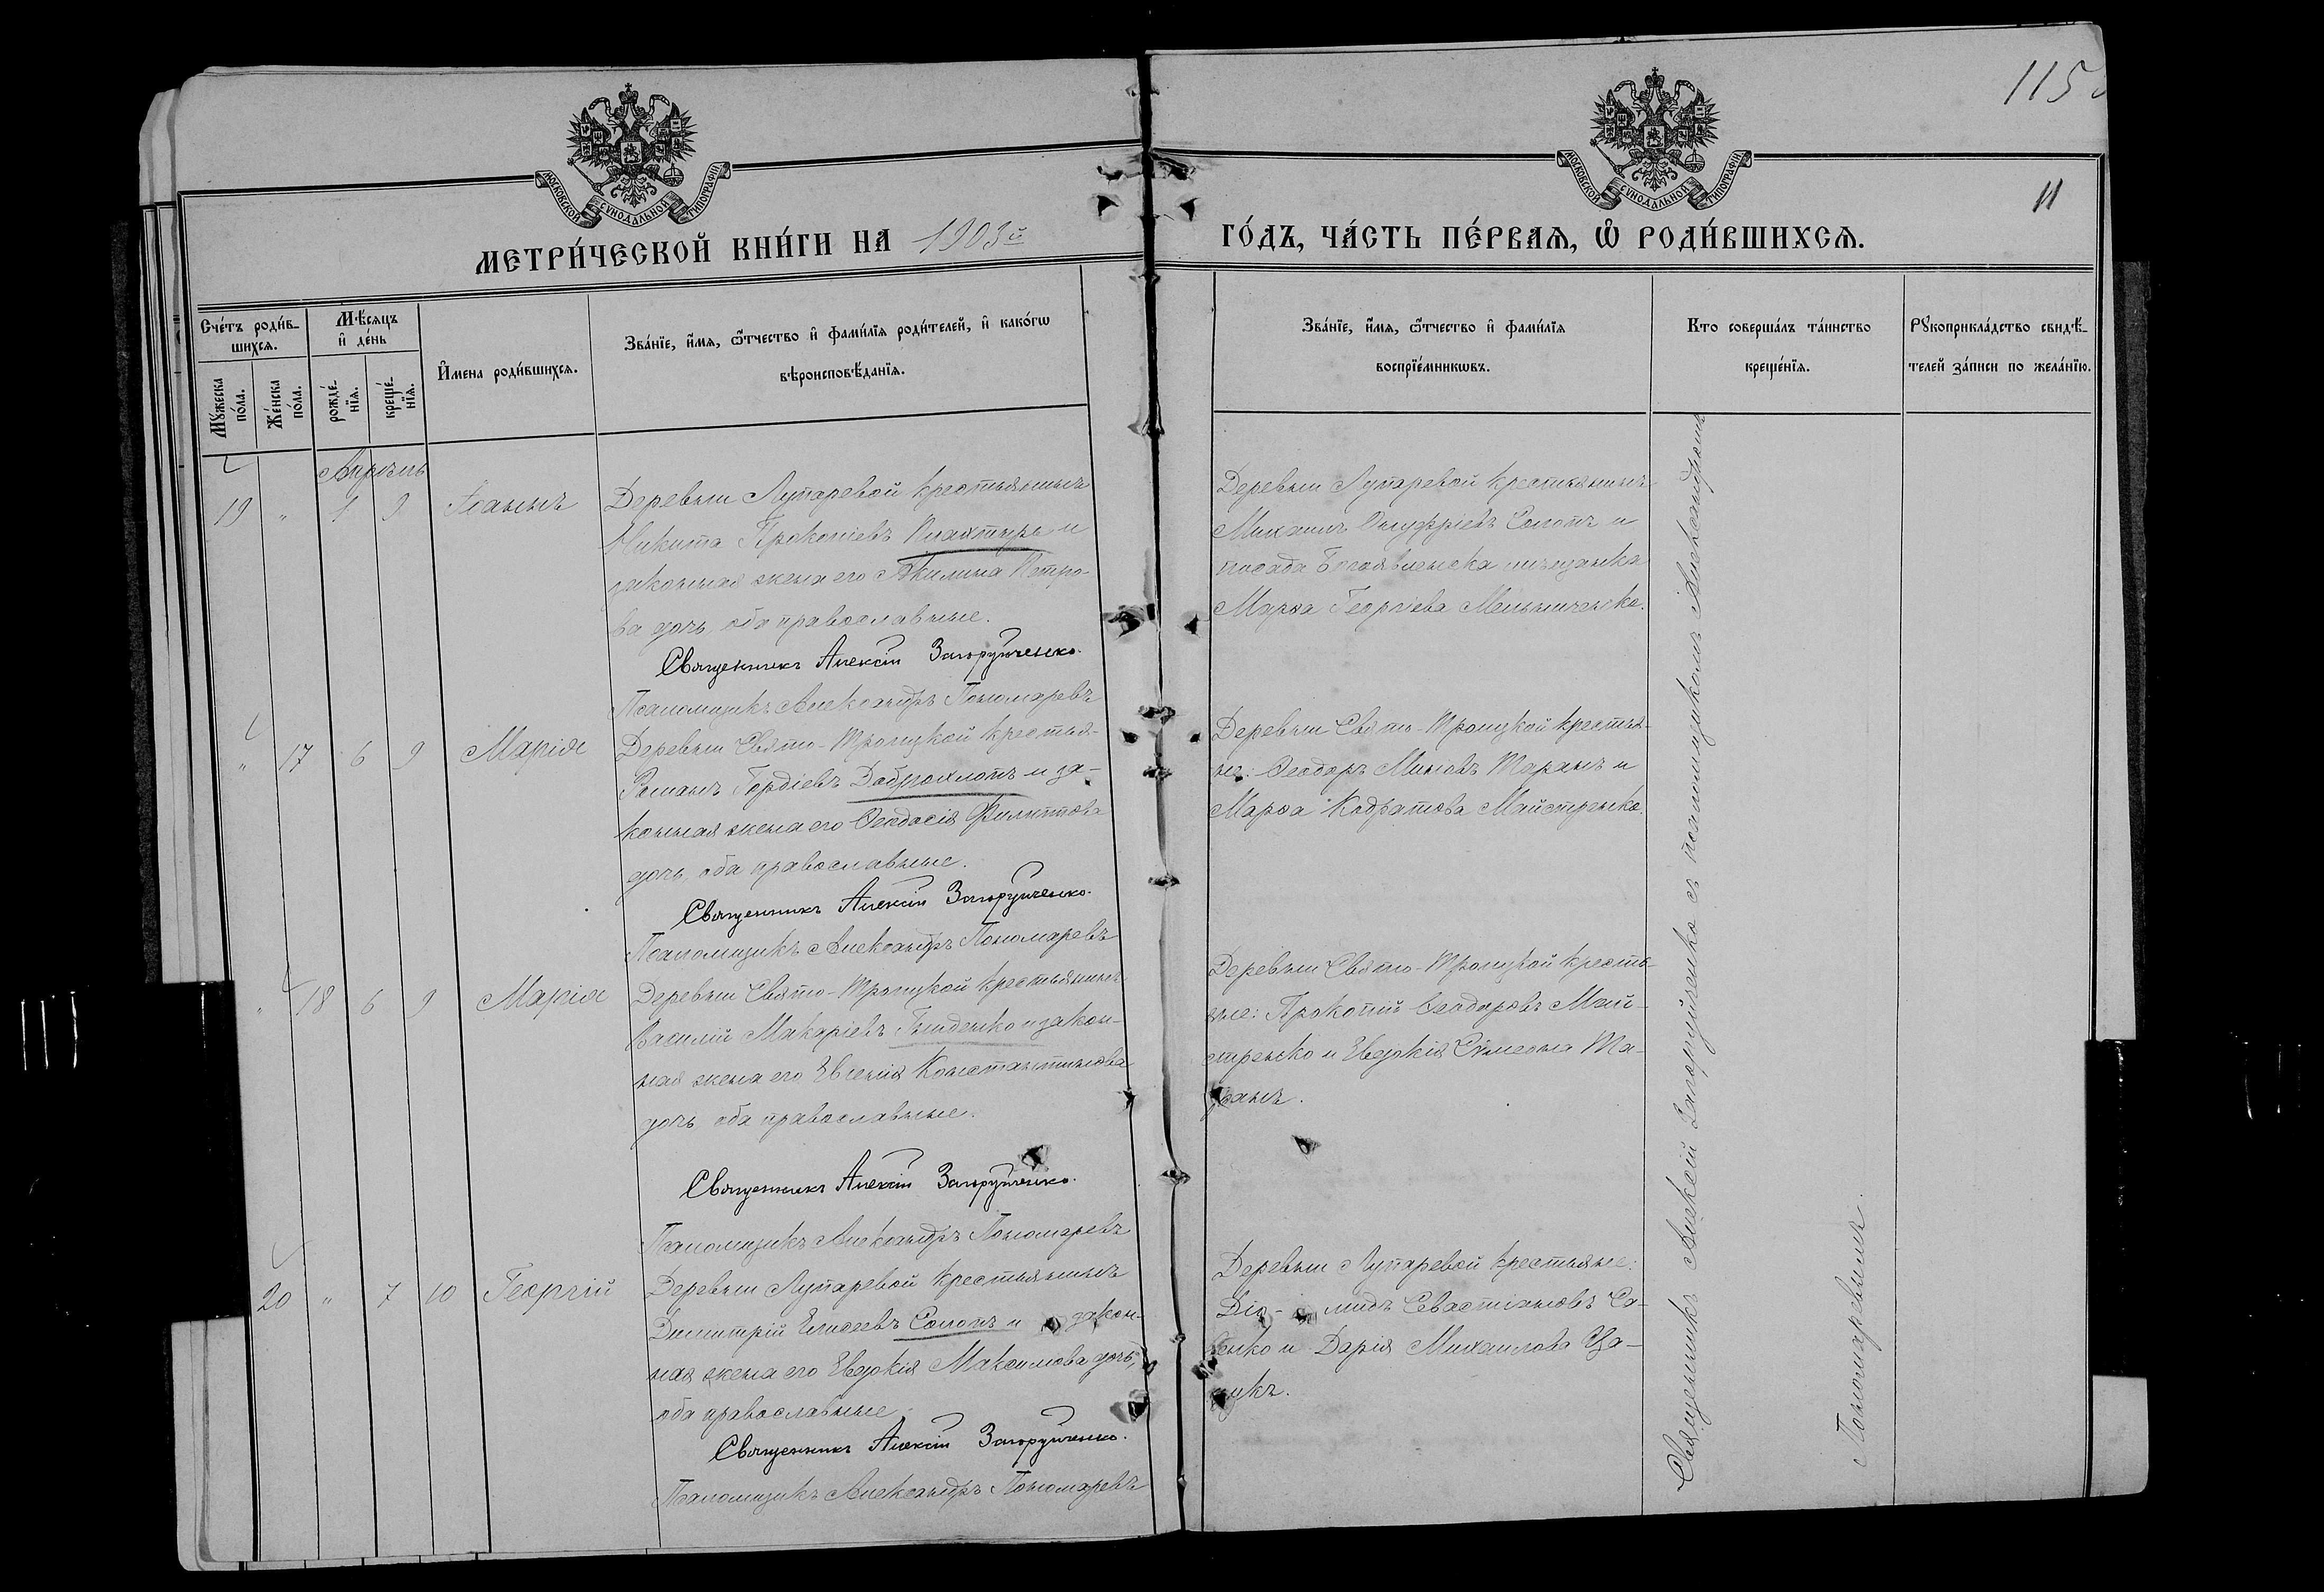 115
11
МОСКОВСКОЙ СѴНОДАЛЬНОЙ ТИПОГРАФІИ
МОСКОВСКОЙ СѴНОДАЛЬНОЙ ТИПОГРАФІИ
МЕТРИ́ЧЕСКОЙ КНИ́ГИ НА 1903й
ГО́ДЪ, ЧА́СТЬ ПЕ́РВАѦ, Ѽ РОДИ́ВШИХСѦ.
Сче́тъ роди́в-
шихсѧ.
Мꙋжеска
по́ла.
Же́нска
по́ла.
Мѣ́сѧцъ
и҆ де́нь
рожде́-
нїѧ.
креще́-
нїѧ.
И҆́мена роди́вшихсѧ.
Зва́нїе, и҆́мѧ, ѻ҆́тчество и҆ фами́лїѧ роди́телей, и҆ како́гѡ
вѣроисповѣ́данїѧ.
Зва́нїе, и҆́мѧ, ѻ҆́тчество и҆ фами́лїѧ
воспрїе́мникѡвъ.
Кто соверша́лъ та́инство
креще́нїѧ.
Рꙋкоприкла́дство свидѣ́-
телей за́писи по жела́нїю.
Апрѣль
19 " 1 9 Іоаннъ
Деревни Лупаревой крестьянинъ
Никита Прокопіевъ Плахтырь и
законная жена его Акилина Петро-
ва дочь, оба православные.
Священникъ Алексій Загоруйченко.
Псаломщикъ Александръ Пономаревъ
Деревни Лупаревой крестьянинъ
Михаилъ Онуфріевъ Солопъ и
посада Богоявленска мѣщанка
Марѳа Георгіева Мельниченко.
" 17 6 9 Марія
Деревни Свято-Троицкой крестья-
Романъ Гордіевъ Доброхлопъ и за-
конная жена его Ѳеодосія Филиппова
дочь, оба православные.
Священникъ Алексій Загоруйченко.
Псаломщикъ Александръ Пономаревъ
Деревни Свято-Троицкой крестья-
не: Ѳеодоръ Миновъ Таранъ и
Марѳа Кодратова Майстренко.
" 18 6 9 Марія
Деревни Свято-Троицкой крестьянинъ
Василій Макаріевъ Гниденко и закон-
ная жена его Евгенія Константинова
дочь оба православные.
Священникъ Алексій Загоруйченко.
Псаломщикъ Александръ Пономаревъ
Деревни Свято-Троицкой кресть-
яне: Прокопій Ѳеодоровъ Май-
стренко и Евдокія Сѵмеона Та-
ранъ.
20 " 7 10 Георгій
Деревни Лупаревой крестьянинъ
Димитрій Елисеевъ Солопъ и закон-
ная жена его Евдокія Максимова дочь,
оба православные.
Священникъ Алексій Загоруйченко.
Псаломщикъ Александръ Пономаревъ
Деревни Лупаревой крестьяне:
Діо- мидъ Севастіановъ Са-
енко и Дарія Михаилова
Священникъ Алексій Загоруйченко съ псаломщикомъ Александромъ
Пономаревымъ.